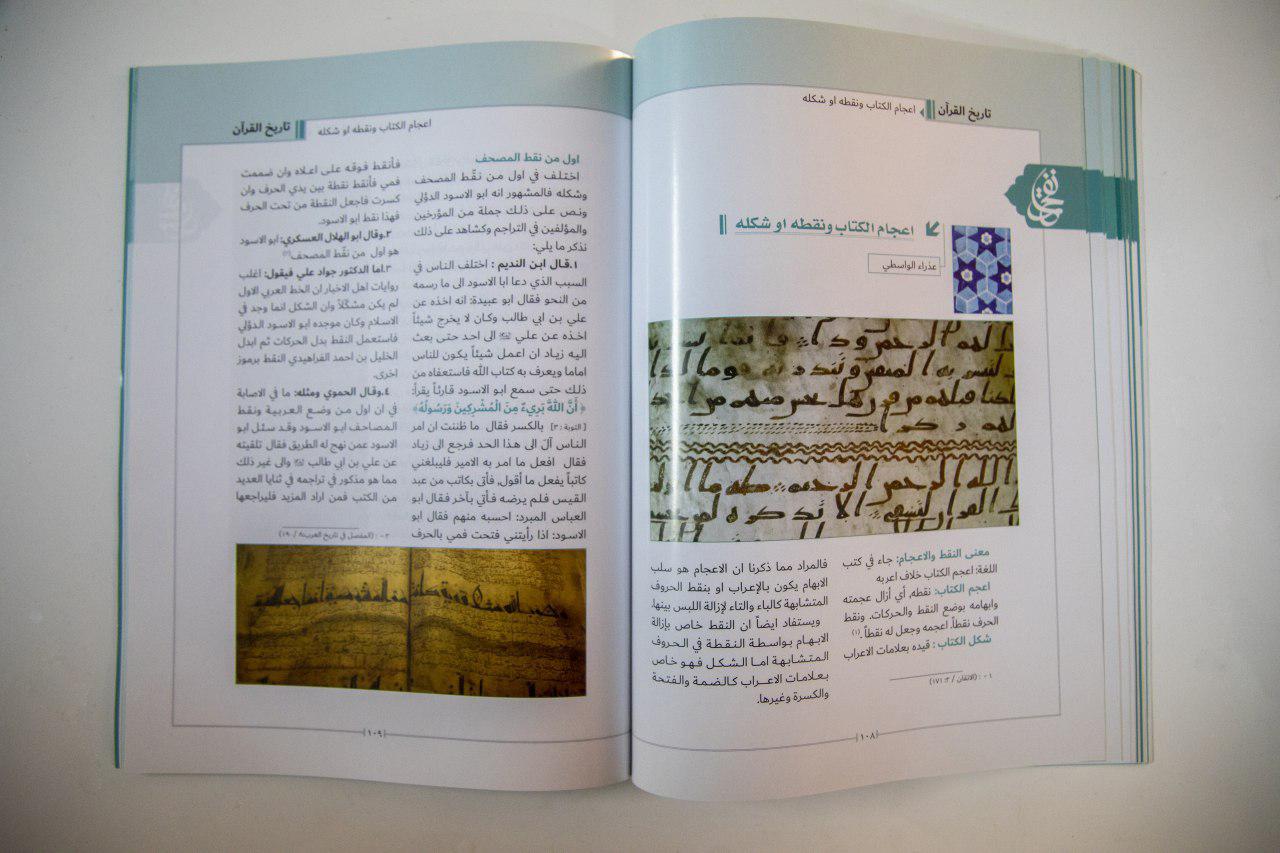 تاريخ القرآن
اعجام الكتاب ونقطه او شكله
اعجام الكتاب ونقطه او شكله
عذراء الواسطي
معنى النقط والاعجام: جاء في كتب
اللغة: اعجم الكتاب خلاف اعربه
اعجم الكتاب: نقطه، أي أزال عجمته
وابهامه بوضع النقط والحركات. ونقط
الحرف نقطاً. اعجمه وجعل له نقطاً. (١)
شكل الكتاب: قيده بعلامات الاعراب
١- : (الاتقان / ٢: ١٧١)
فالمراد مما ذكرنا ان الاعجام هو سلب
الابهام يكون بالإعراب او بنقط الحروف
المتشابهة كالباء والتاء لإزالة اللبس بينها.
ويستفاد ايضاً ان النقط خاص بإزالة
الابهام بواسطة النقطة في الحروف
المتشابهة اما الشكل فهو خاص
بعلامات الاعراب كالضمة والفتحة
والكسرة وغيرها.
١٠٨
تاريخ القرآن
اعجام الكتاب ونقطه او شكله
اول من نقط المصحف
اختلف في اول من نقّط المصحف
وشكله فالمشهور انه ابو الاسود الدؤلي
ونص على ذلك جملة من المؤرخين
والمؤلفين في التراجم وكشاهد على ذلك
نذكر ما يلي:
١.قال ابن النديم : اختلف الناس في
السبب الذي دعا ابا الاسود الى ما رسمه
من النحو فقال ابو عبيدة: انه اخذه عن
علي بن ابي طالب وكان لا يخرج شيئاً
اخذه عن علي الى احد حتى بعث
اليه زياد ان اعمل شيئاً يكون للناس
اماما ويعرف به كتاب الله فاستعفاه من
ذلك حتى سمع ابو الاسود قارئاً يقرأ:
﴿ أَنَّ اللَّهَ بَرِيءٌ مِنَ الْمُشْرِكِينَ وَرَسُولُهُ﴾
[التوبة : ٣] بالكسر فقال ما ظننت ان امر
الناس آلَ الى هذا الحد فرجع الى زياد
فقال افعل ما امر به الامير فليبلغني
كاتباً يفعل ما أقول، فأتى بكاتب من عبد
القيس فلم يرضه فأتي بآخر فقال ابو
العباس المبرد: احسبه منهم فقال ابو
الاسود: اذا رأيتني فتحت فمي بالحرف
فأنقط فوقه على اعلاه وان ضممت
فمي فأنقط نقطة بين يدي الحرف وان
كسرت فاجعل النقطة من تحت الحرف
فهذا نقط ابو الاسود.
٢.وقال ابو الهلال العسكري: ابو الاسود
هو اول من نقّط المصحف.
٣.اما الدكتور جواد علي فيقول: اغلب
روايات اهل الاخبار ان الخط العربي الاول
لم يكن مشكّلاً وان الشكل انما وجد في
الاسلام وكان موجده ابو الاسود الدؤلي
فاستعمل النقط بدل الحركات ثم ابدل
الخليل بن احمد الفراهيدي النقط برموز
اخرى.
٤.وقال الحموي ومثله: ما في الاصابة
في ان اول من وضع العربية ونقط
المصاحف ابو الاسود وقد سئل ابو
الاسود عمن نهج له الطريق فقال تلقيته
عن علي بن ابي طالب والى غير ذلك
مما هو مذكور في تراجمه في ثنايا العديد
من الكتب فمن اراد المزيد فليراجعها
١٠٩